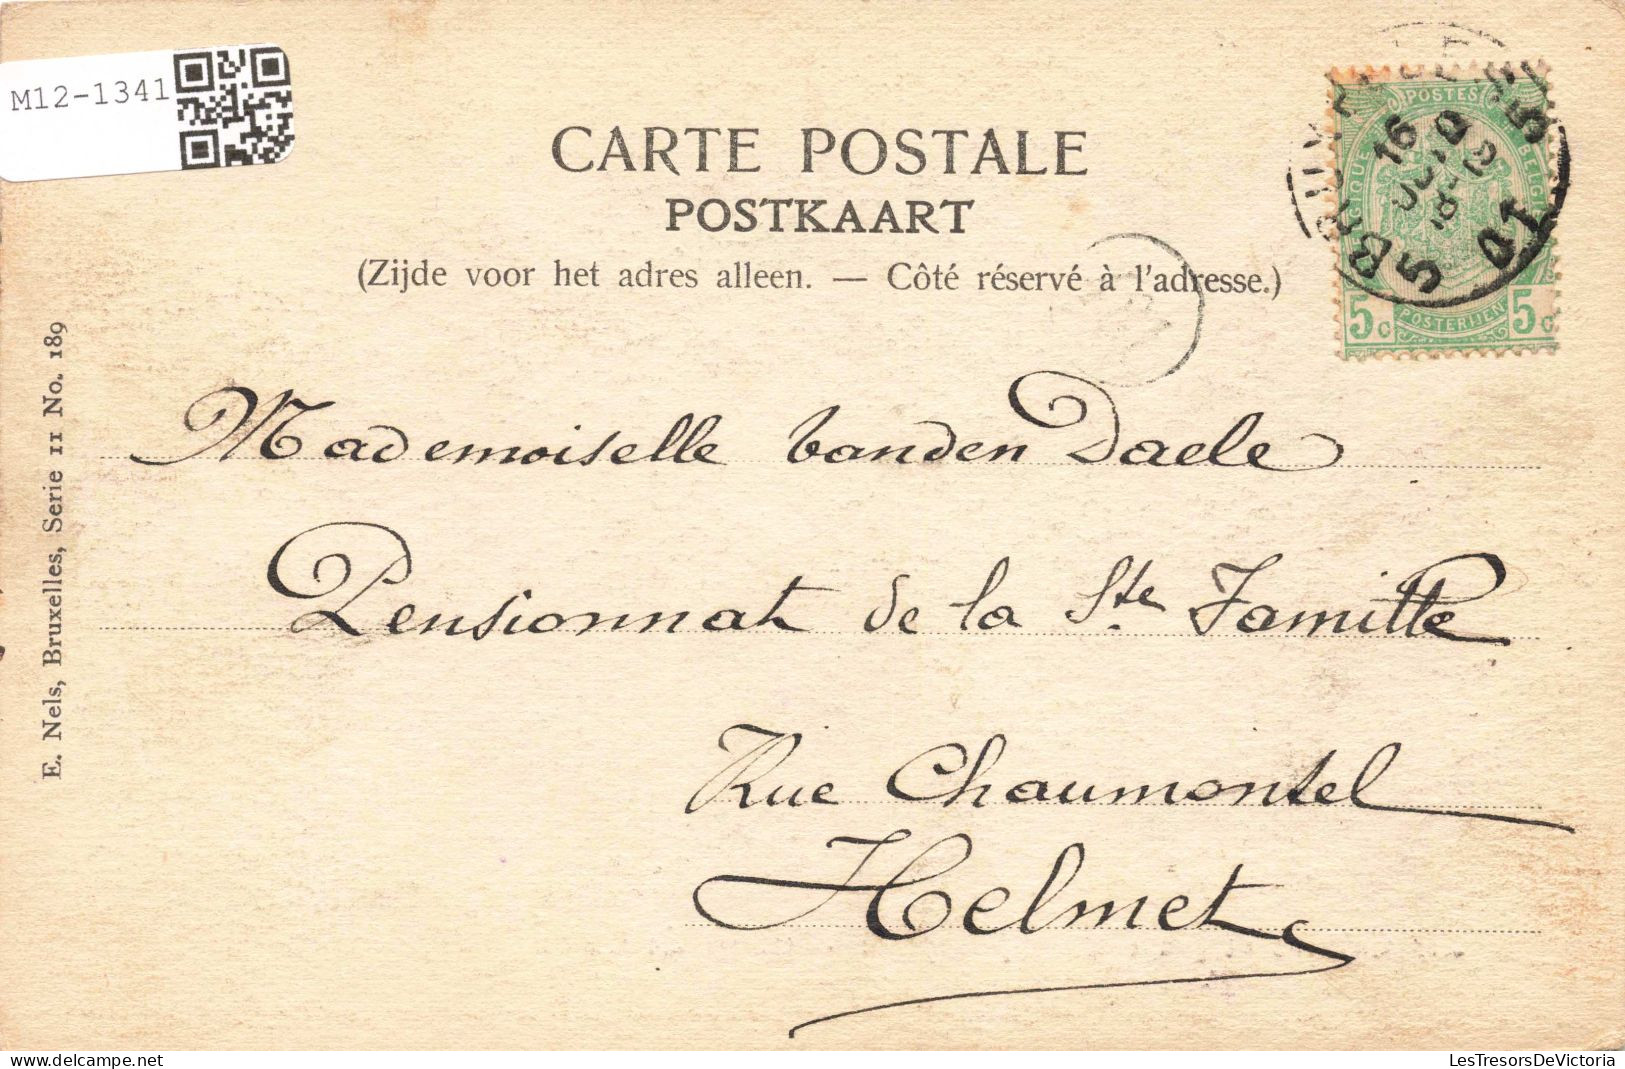 M12-1341
CARTE POSTALE
POSTKAART
(Zijde voor het adres alleen. — Côté réservé à l'adresse.)
POSTES
BELGIQUE
5c POSTERIJEN 5c
16
E. Nels, Bruxelles, Serie 11 No. 189
Mademoiselle Vanden Daele
Pensionnat de la Ste Famille
Rue Chaumontel
Helmet
LesTresorsDeVictoria